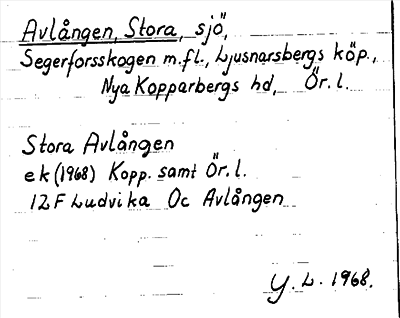 Avlången, Stora, sjö,
Segerforsskogen m.fl., Ljusnarsbergs köp.,
Nya Kopparbergs hd, Ör. l.
Stora Avlången
ek (1968) Kopp. samt Ör. l.
12 F Ludvika Oc Avlången
Y. L. 1968.